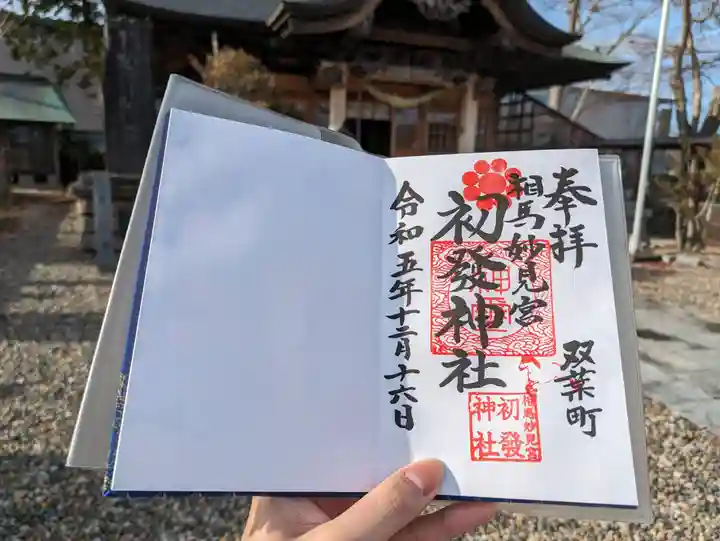 奉拝
双葉町
相馬妙見宮
初發神社
令和五年十二月十六日
初發
神社
相馬妙見宮